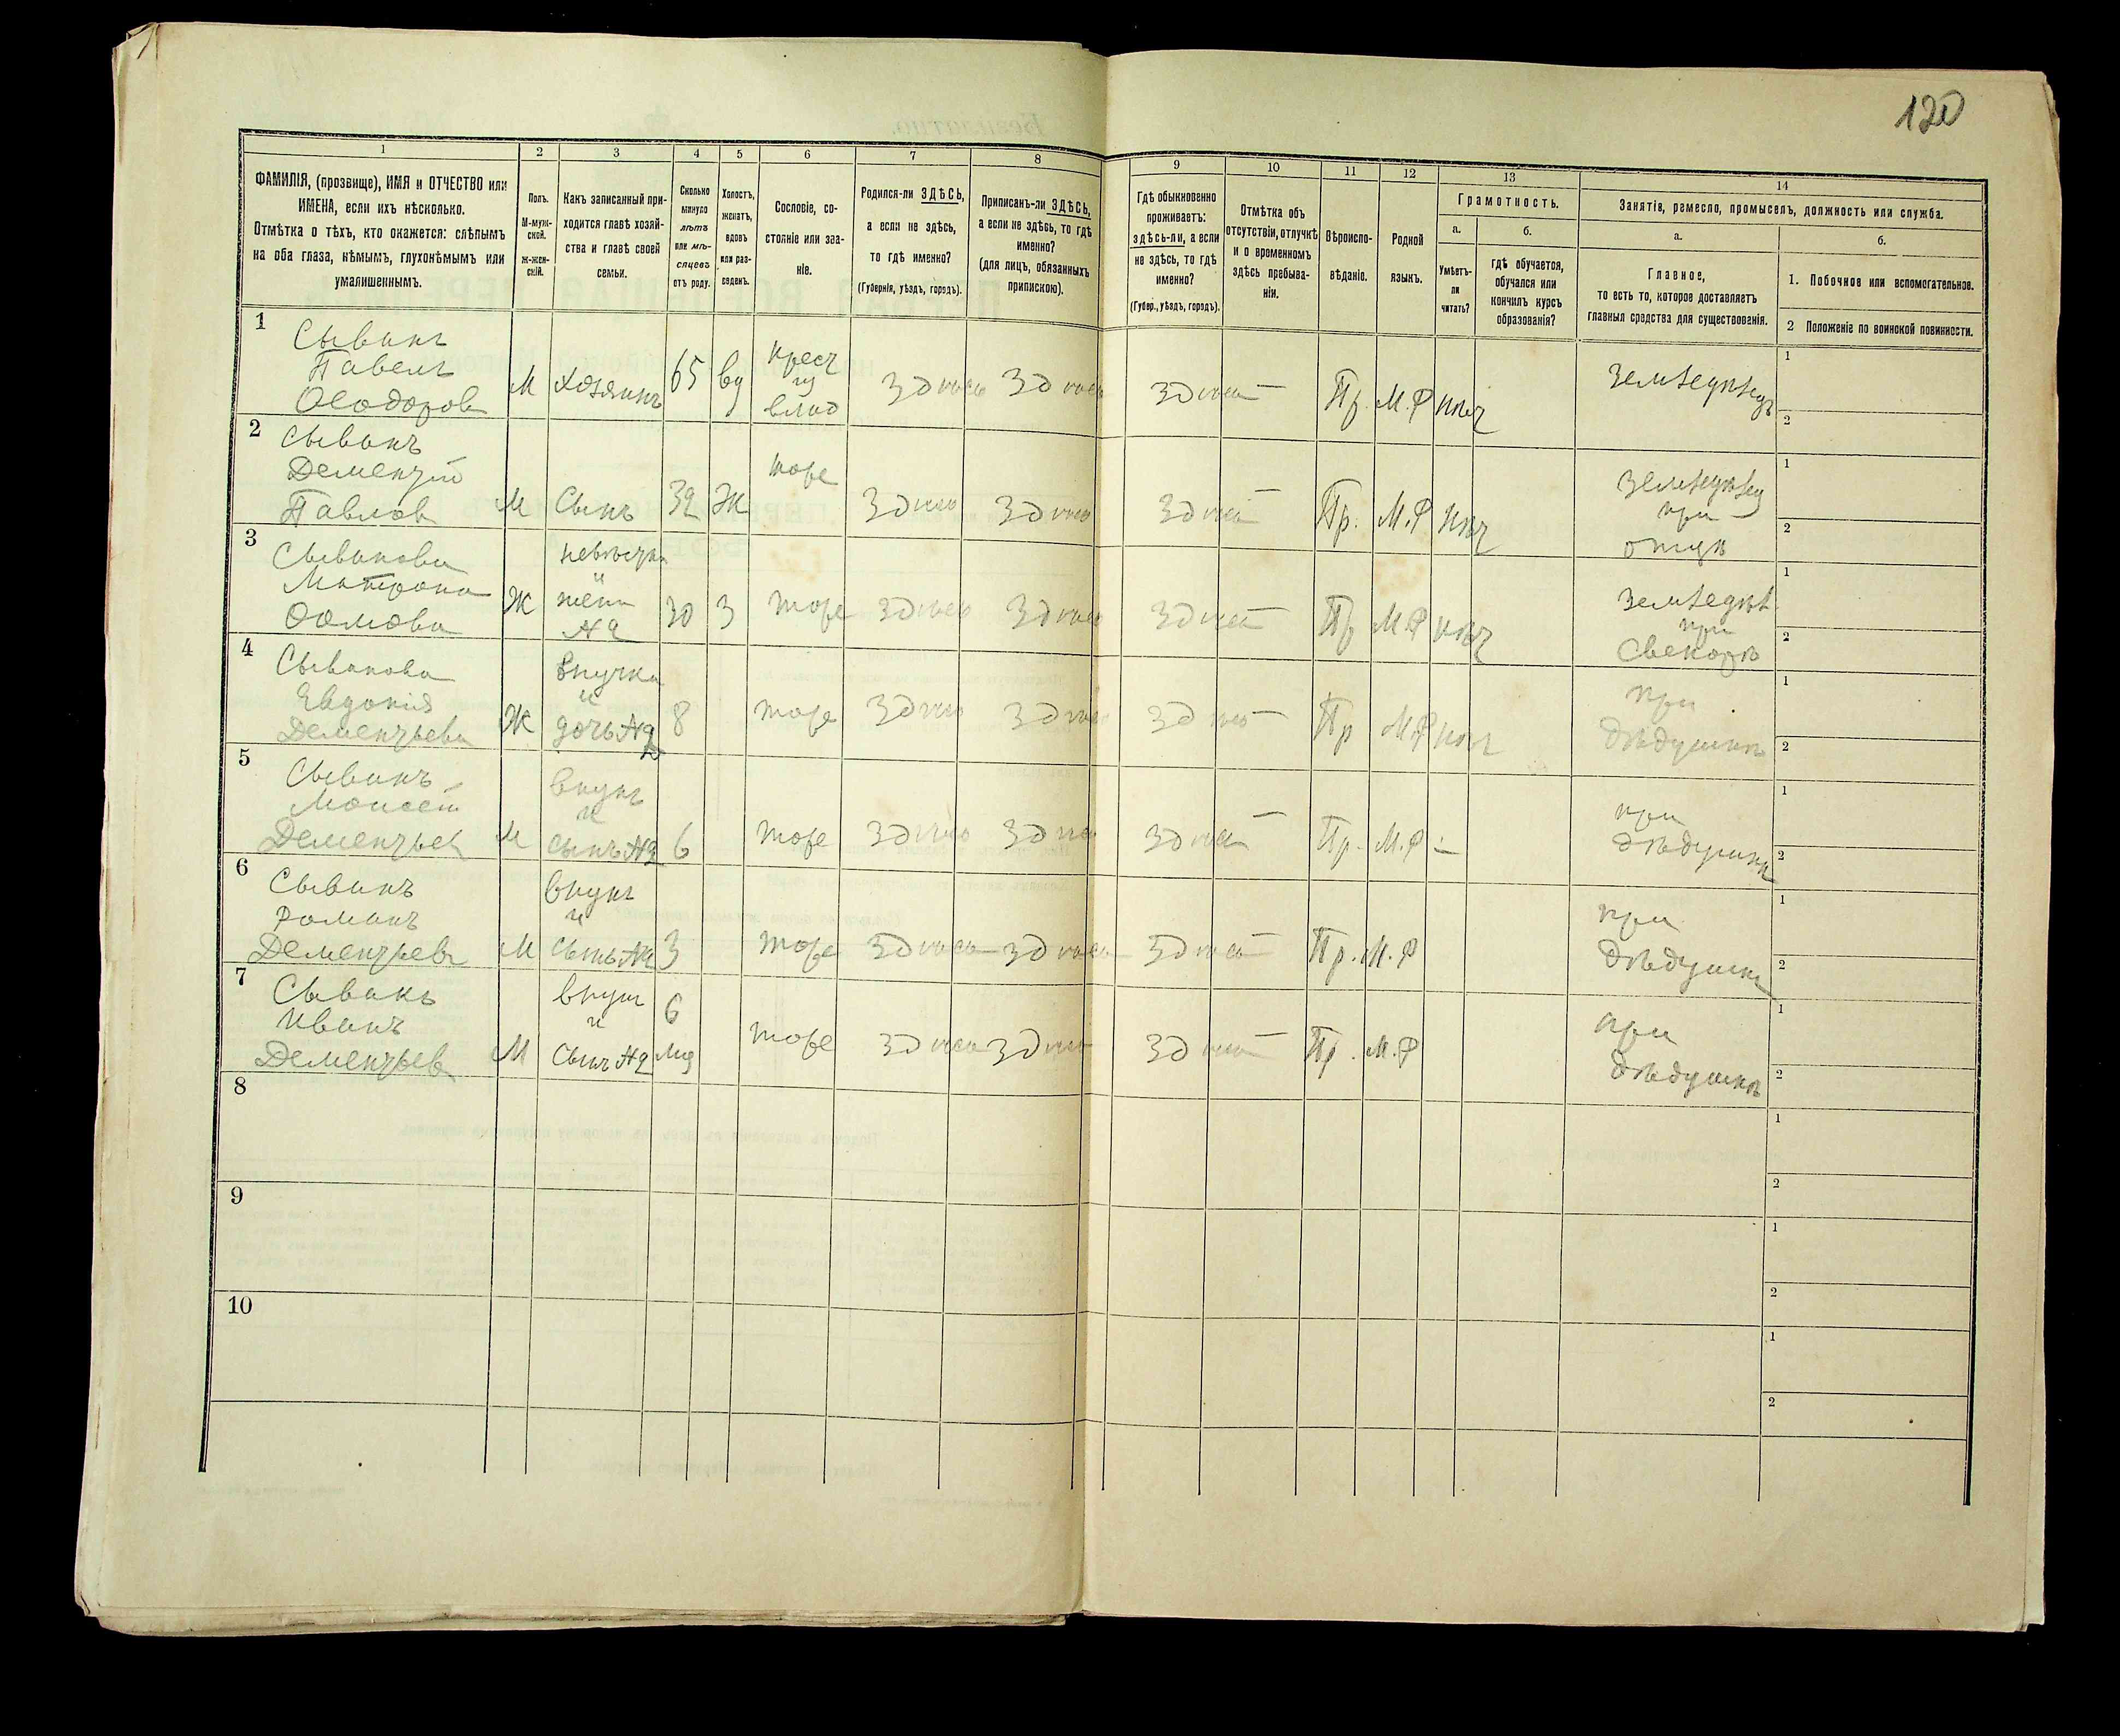 120
1 2 3 4 5 6 7 8 9 10 11 12 13 14
ФАМИЛІЯ, (прозвище), ИМЯ и ОТЧЕСТВО или
ИМЕНА, если ихъ нѣсколько.
Отмѣтка о тѣхъ, кто окажется: слѣпымъ
на оба глаза, нѣмымъ, глухонѣмымъ или
умалишеннымъ.
Полъ.
М-муж-
ской.
Ж-жен-
скій.
Какъ записанный при-
ходится главѣ хозяй-
ства и главѣ своей
семьи.
Сколько
минуло
лѣтъ
или мѣ-
сяцевъ
отъ роду.
Холостъ,
женатъ,
вдовъ
или раз-
веденъ.
Сословіе, со-
стояніе или зва-
ніе.
Родился-ли ЗДѢСЬ,
а если не здѣсь,
то гдѣ именно?
(Губернія, уѣздъ, городъ).
Приписанъ-ли ЗДѢСЬ,
а если не здѣсь, то гдѣ
именно?
(для лицъ, обязанныхъ
припискою).
Гдѣ обыкновенно
проживаетъ:
здѣсь-ли, а если
не здѣсь, то гдѣ
именно?
(Губер., уѣздъ, городъ).
Отмѣтка объ
отсутствіи, отлучкѣ
и о временномъ
здѣсь пребыва-
ніи.
Вѣроиспо-
вѣданіе.
Родной
языкъ.
Грамотность.
а.
Умѣетъ-
ли
читать?
б.
гдѣ обучается,
обучался или
кончилъ курсъ
образованія?
Занятія, ремесло, промыселъ, должность или служба.
а.
Главное,
то есть то, которое доставляетъ
главныя средства для существованія.
б.
1. Побочное или вспомогательное.
2 Положеніе по воинской повинности.
1
Сывакъ
Павелъ
Ѳеодоровъ
М Хозяинъ 65 вд
крест
из
влад
здѣсь здѣсь здѣсь — Пр. М.Р нѣт
земледѣлец
1
2
2
Сывакъ
Дементій
Павловъ
М Сынъ 32 Ж
тоже
здѣсь здѣсь здѣсь — Пр. М.Р нѣт
земледѣлец
при
отцѣ
1
2
3
Сывакова
Матрона
Ж
невѣстка
и
жена
№2
30 З тоже здѣсь здѣсь здѣсь — Пр М.Р нѣт
земледѣл.
при
свекорѣ
1
2
4
Сывакова
Евдокія
Дементьева
Ж
внучка
и
дочь №2
8 тоже здѣсь здѣсь здѣсь — Пр М.Р нѣт
при
дѣдушкѣ
1
2
5
Сывакъ
Моисей
Дементьев
М
внукъ
и
сынъ №2
6 тоже здѣсь здѣсь здѣсь — Пр. М.Р —
при
дѣдушкѣ
1
2
6
Сывакъ
Романъ
Дементьевъ
М
внукъ
и
сынъ №2
3 тоже здѣсь здѣсь здѣсь — Пр. М.Р
при
дѣдушкѣ
1
2
7
Сывакъ
Иванъ
Дементьевъ
М
внукъ
и
сынъ №2
6
тоже здѣсь здѣсь здѣсь — Пр. М.Р
при
дѣдушкѣ
1
2
8
1
2
9
1
2
10
1
2